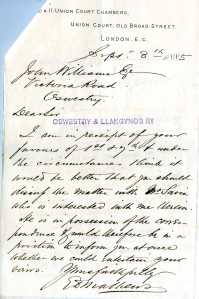 10 & 11, UNION COURT CHAMBERS,
UNION COURT, OLD BROAD STREET,
LONDON, E.C.
Sept 8th 1885
John Williams Esq
Victoria Road
Oswestry
Dear Sir
OSWESTRY & LLANGYNOG RY
I am in receipt of your
favours of 1st & 7th & under
the circumstances think it
would be better that you should
discuss the matter with Mr Savin
who is interested with me therein
He is in possession of the corres-
pondence & would therefore be in a
position to inform you at once
whether we could entertain your
views.
Yours faithfully